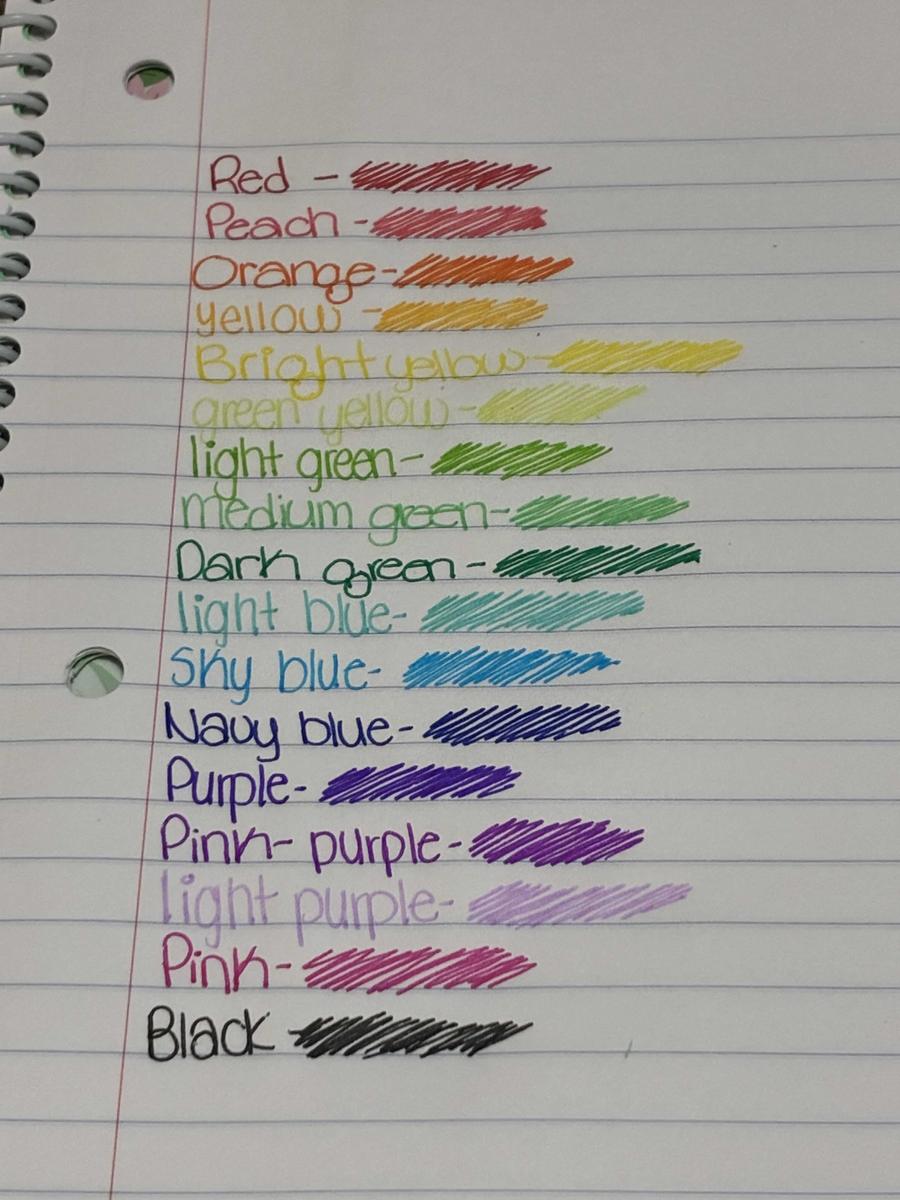 Red -
Peach -
Orange-
yellow -
Bright yellow-
green yellow -
light green-
medium green-
Dark green -
light blue-
Sky blue-
Navy blue-
Purple-
Pink- purple-
light purple-
Pink-
Black -